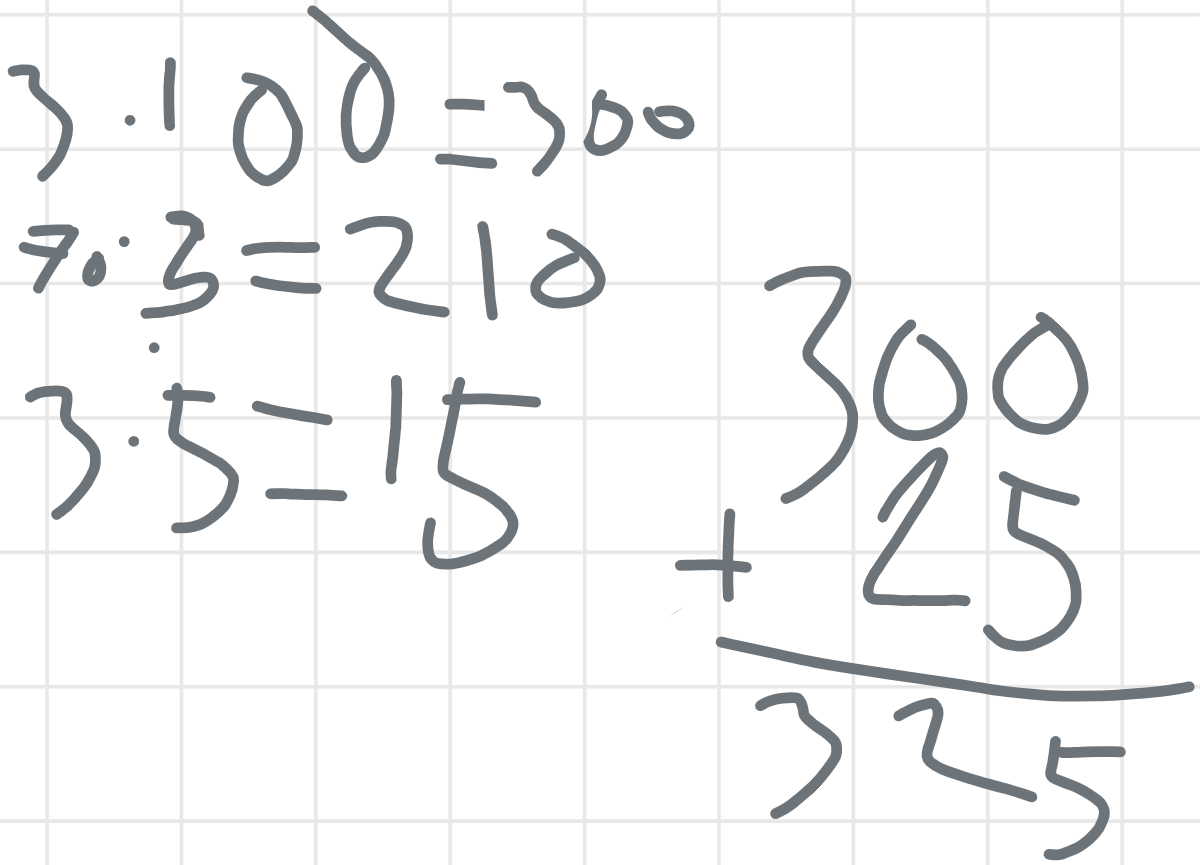 3 · 100 = 300
70 · 3 = 210
3 · 5 = 15
300
+ 25
325